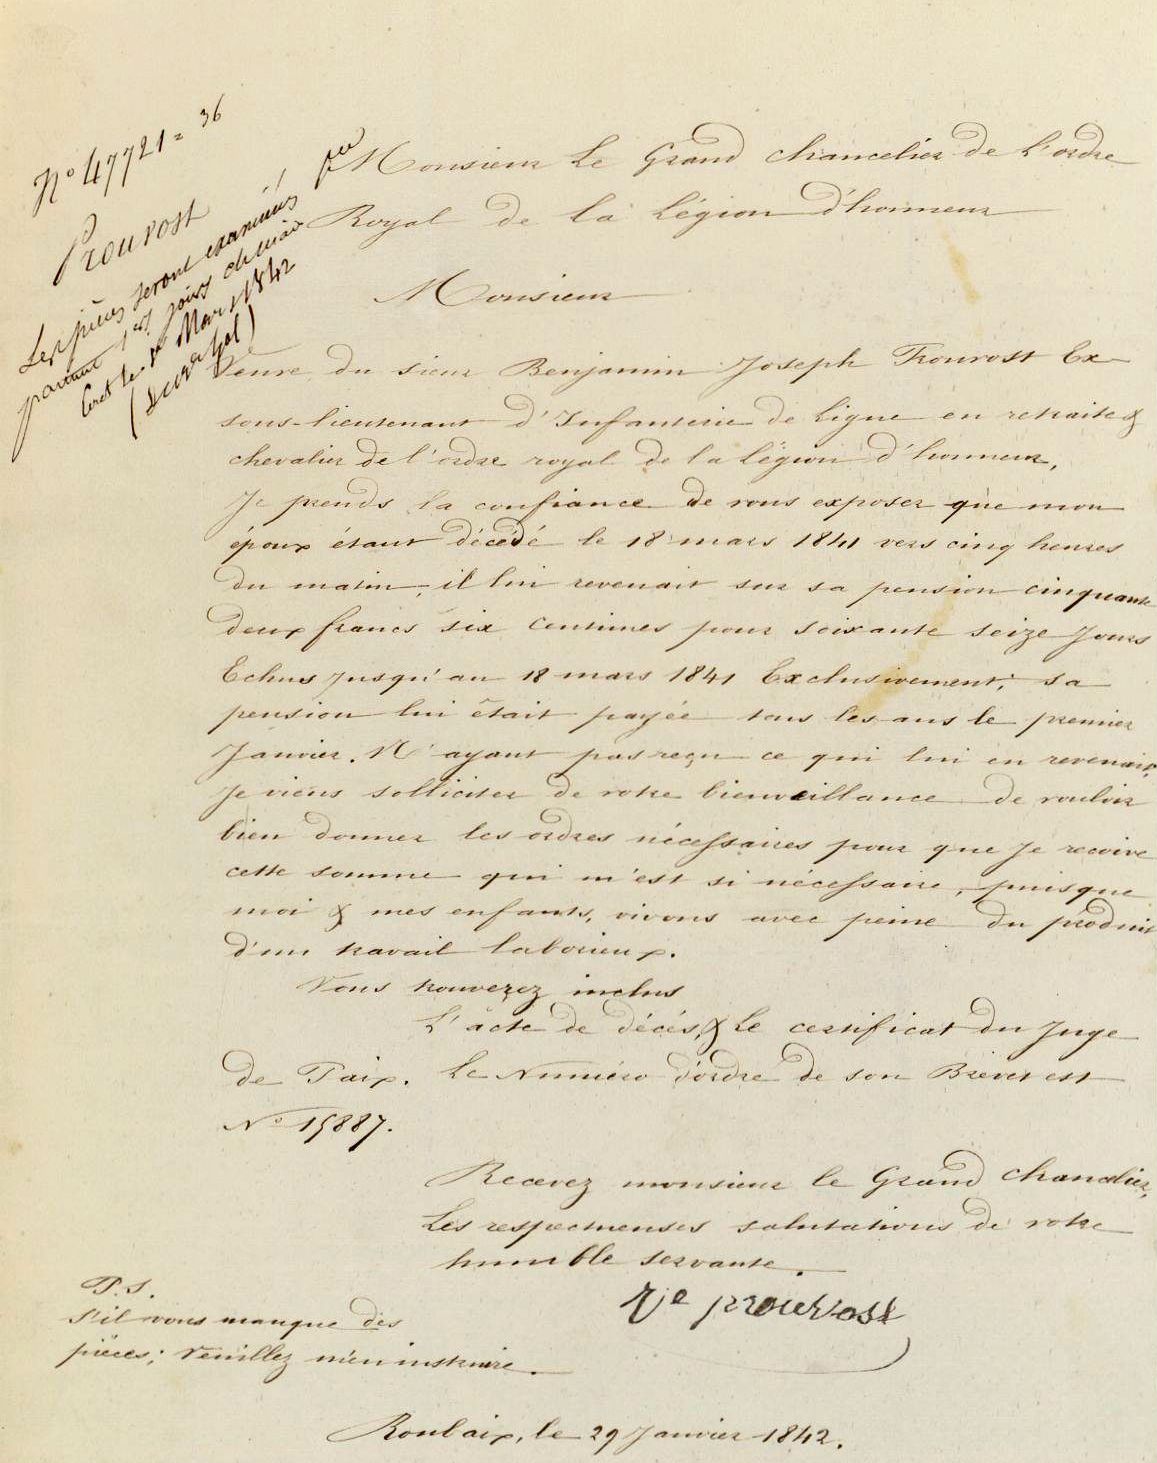 N° 47721 = 36
Prouvost
Les pièces seront examinées
partant 1ers jours
le 1er Mars 1842
Monsieur Le Grand chancelier de L'ordre
Royal de la Légion d'honneur
Monsieur
Veuve du sieur Benjamin Joseph Prouvost Ex
sous-lieutenant d'Infanterie de Ligne en retraite &
chevalier de l'ordre royal de la Légion d'honneur,
Je prends la confiance de vous exposer que mon
époux étant décédé le 18 mars 1841 vers cinq heures
du matin, il lui revenait sur sa pension cinquante
deux francs six Centimes pour soixante seize Jours
Echus jusqu'au 18 mars 1841 Exclusivement; sa
pension lui était payée tous les ans le premier
Janvier. N'ayant pas reçu ce qui lui en revenait,
Je viens solliciter de votre bienveillance de vouloir
bien donner les ordres nécessaires pour que Je reçoive
cette somme qui m'est si nécessaire, puisque
moi & mes enfants, vivons avec peine du produit
d'un travail laborieux.
Vous trouverez inclus
L'acte de décès, & Le certificat du Juge
de Paix. Le Numéro d'ordre de son Brevet est
N° 15887.
Recevez monsieur le Grand Chancelier,
Les respectueuses salutations de votre
humble servante.
Ve prouvost
P.S.
S'il vous manque des
pièces; Veuillez m'en instruire.
Roubaix, le 29 Janvier 1842.